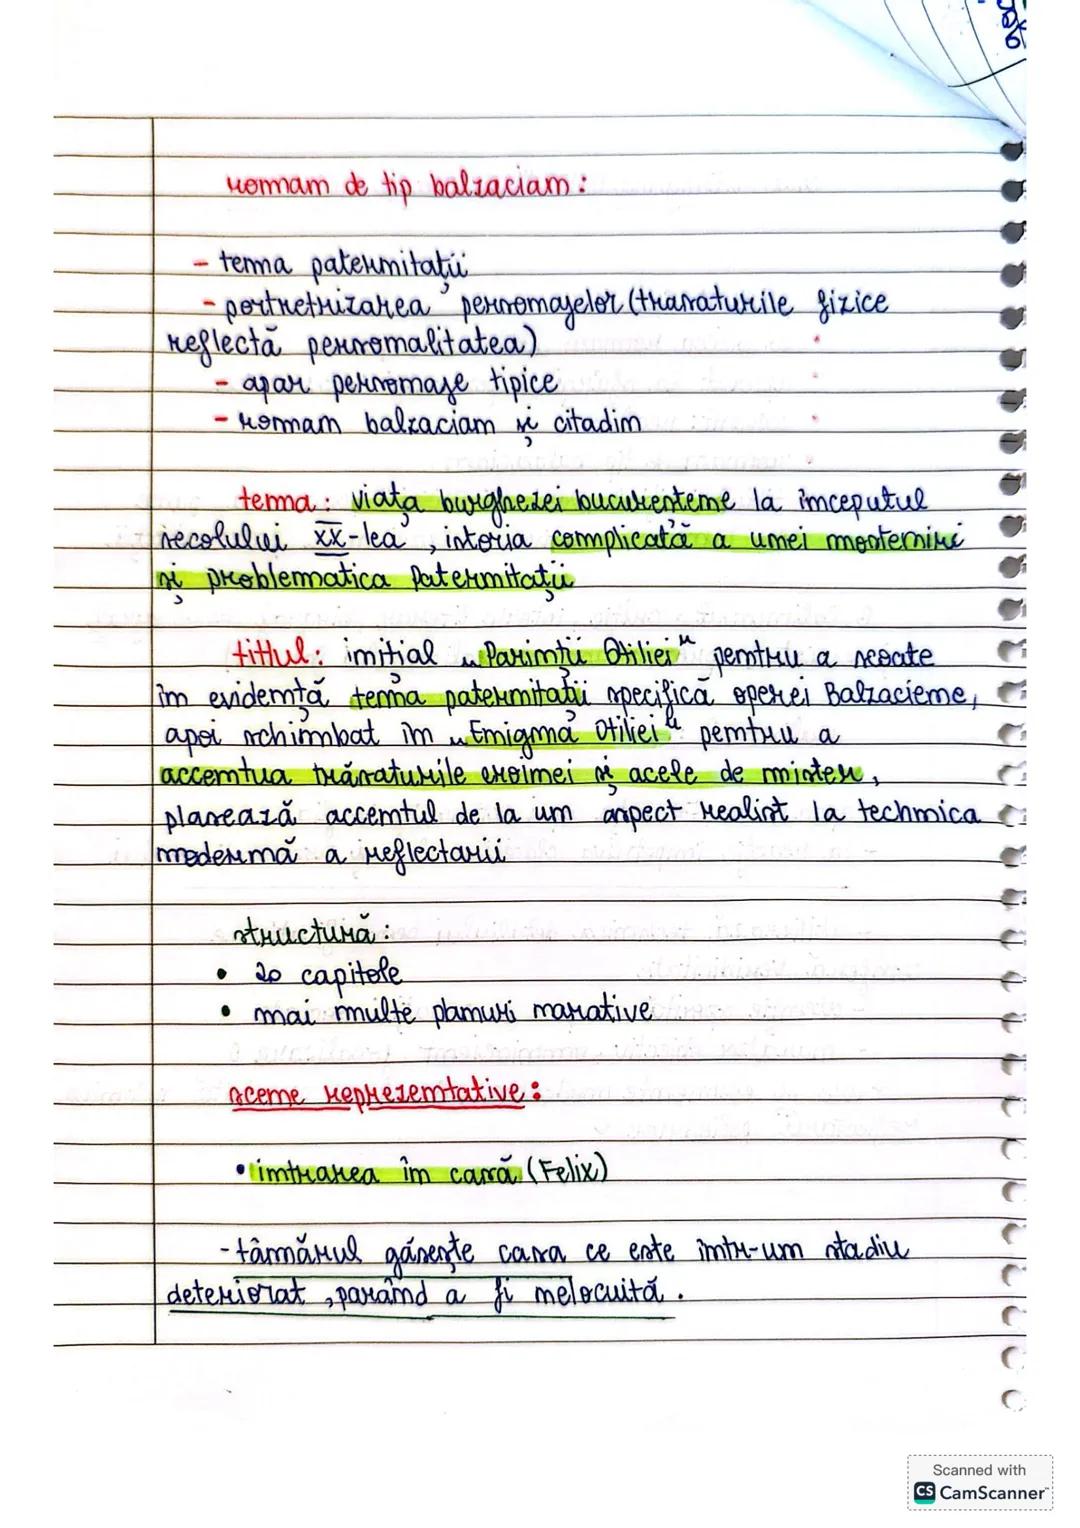 roman de tip balzacian:
- tema paternității
- portretrizarea personajelor (trasaturile fizice
reflectă personalitatea)
- apar personaje tipice
- roman balzacian și citadin
tema: viața burghezei bucureștene la începutul
secolului XX-lea, istoria complicată a unei moșteniri
și problematica Paternității
titlul: inițial „Parinții Otiliei" pentru a scoate
în evidență tema paternității specifică operei Balzaciene,
apoi schimbat în „Enigma Otiliei" pentru a
accentua trăsaturile eroinei și acele de mister,
plasează accentul de la un aspect realist la technica
modernă a reflectarii
structură:
• 20 capitole
• mai multe planuri narative
scene reprezentative:
• intrarea în casă (Felix)
- tânărul găsește casa ce este într-un stadiu
deteriorat, parând a fi nelocuită.
Scanned with
CS CamScanner